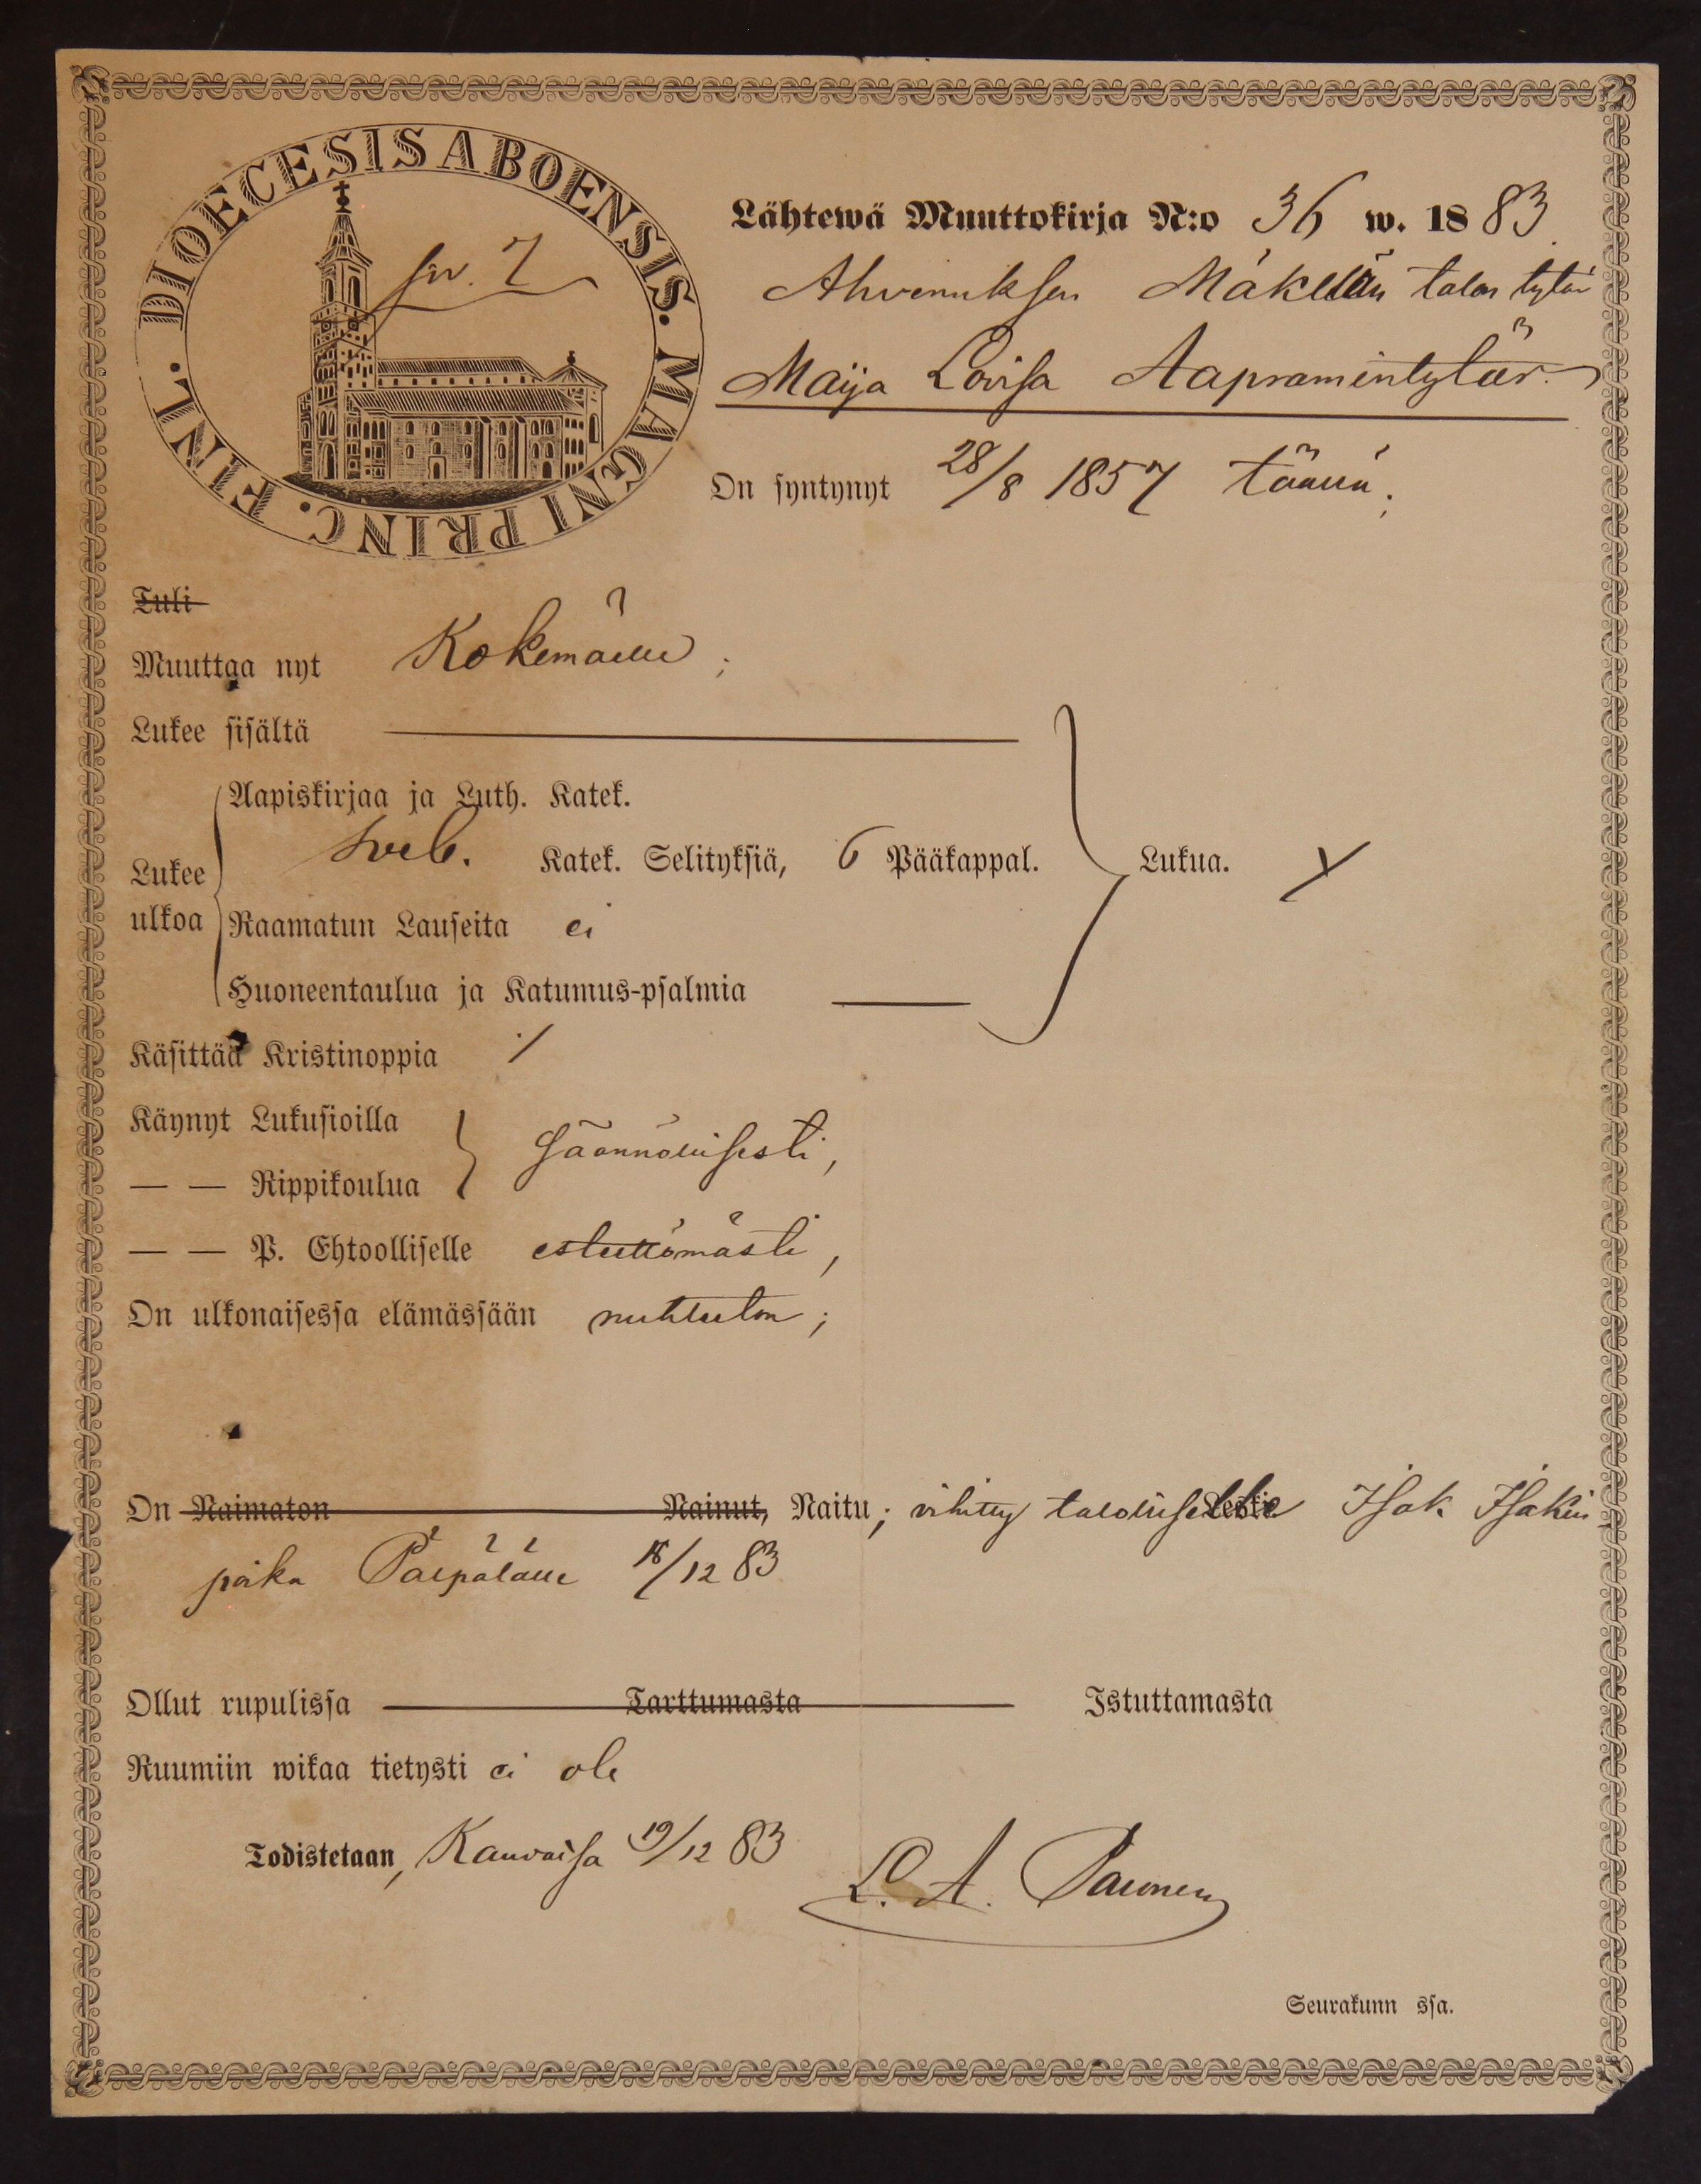 DIOECESIS ABOENSIS. MAGNI PRINC. FINL.
siv. 7
Lähtewä Muuttokirja N:o 36 w. 1883
Ahvenuksen Mäkelän talon tytär
Maija Lovisa Aapramintytär
On syntynyt 28/8 1857 täällä;
Tuli
Muuttaa nyt Kokemäelle;
Lukee sisältä
Aapiskirjaa ja Luth. Katek.
Lukee ulkoa
Sveb. Katek. Selityksiä, 6 Pääkappal. Lukua.
Raamatun Lauseita ei
Huoneentaulua ja Katumus-psalmia
Käsittää Kristinoppia
Käynyt Lukusioilla
— — Rippikoulua
säännöllisesti,
— — P. Ehtoolliselle esteettömästi,
On ulkonaisessa elämässään nuhteeton;
On Naimaton Nainut, Naitu; vihitty talolliselle Leski Isak Isakin
poika Päepälälle 18/12 83
Ollut rupulissa Tarttumasta Istuttamasta
Ruumiin wikaa tietysti ei ole
Todistetaan, Kauvatsa 19/12 83
L. A. Paunonen
Seurakunn ssa.